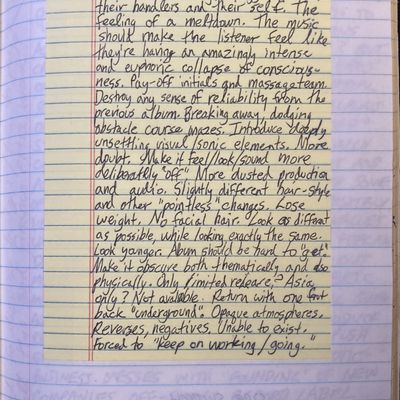 their handlers and their self. The
feeling of a meltdown. The music
should make the listener feel like
they're having an amazingly intense
and euphoric collapse of conscious-
ness. Pay-off initials and massage team.
Destroy any sense of reliability from the
previous album. Breaking away, dodging
obstacle course mazes. Introduce deeply
unsettling visual/sonic elements. More
doubt. Make it feel/look/sound more
deliberately "off" More dusted production
and audio. Slightly different hair-style
and other "pointless" changes. Lose
weight. No facial hair. Look as different
as possible, while looking exactly the same.
Look younger. Album should be hard to "get".
Make it obscure both thematically and also
physically. Only limited release? Asia
only? Not available. Return with one foot
back "underground". Opaque atmospheres.
Reverses, negatives. Unable to exist.
Forced to "keep on working/going."